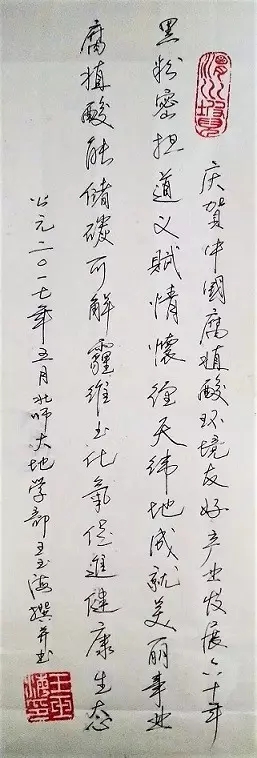 庆贺中國腐植酸环境友好产业发展六十年
黑粉密担道义赋情懷經天纬地成就美丽事业
腐植酸能储碳可解霾维土化氣促進健康生态
公元二〇一七年五月北师大地学部王玉海撰并书
王玉海印